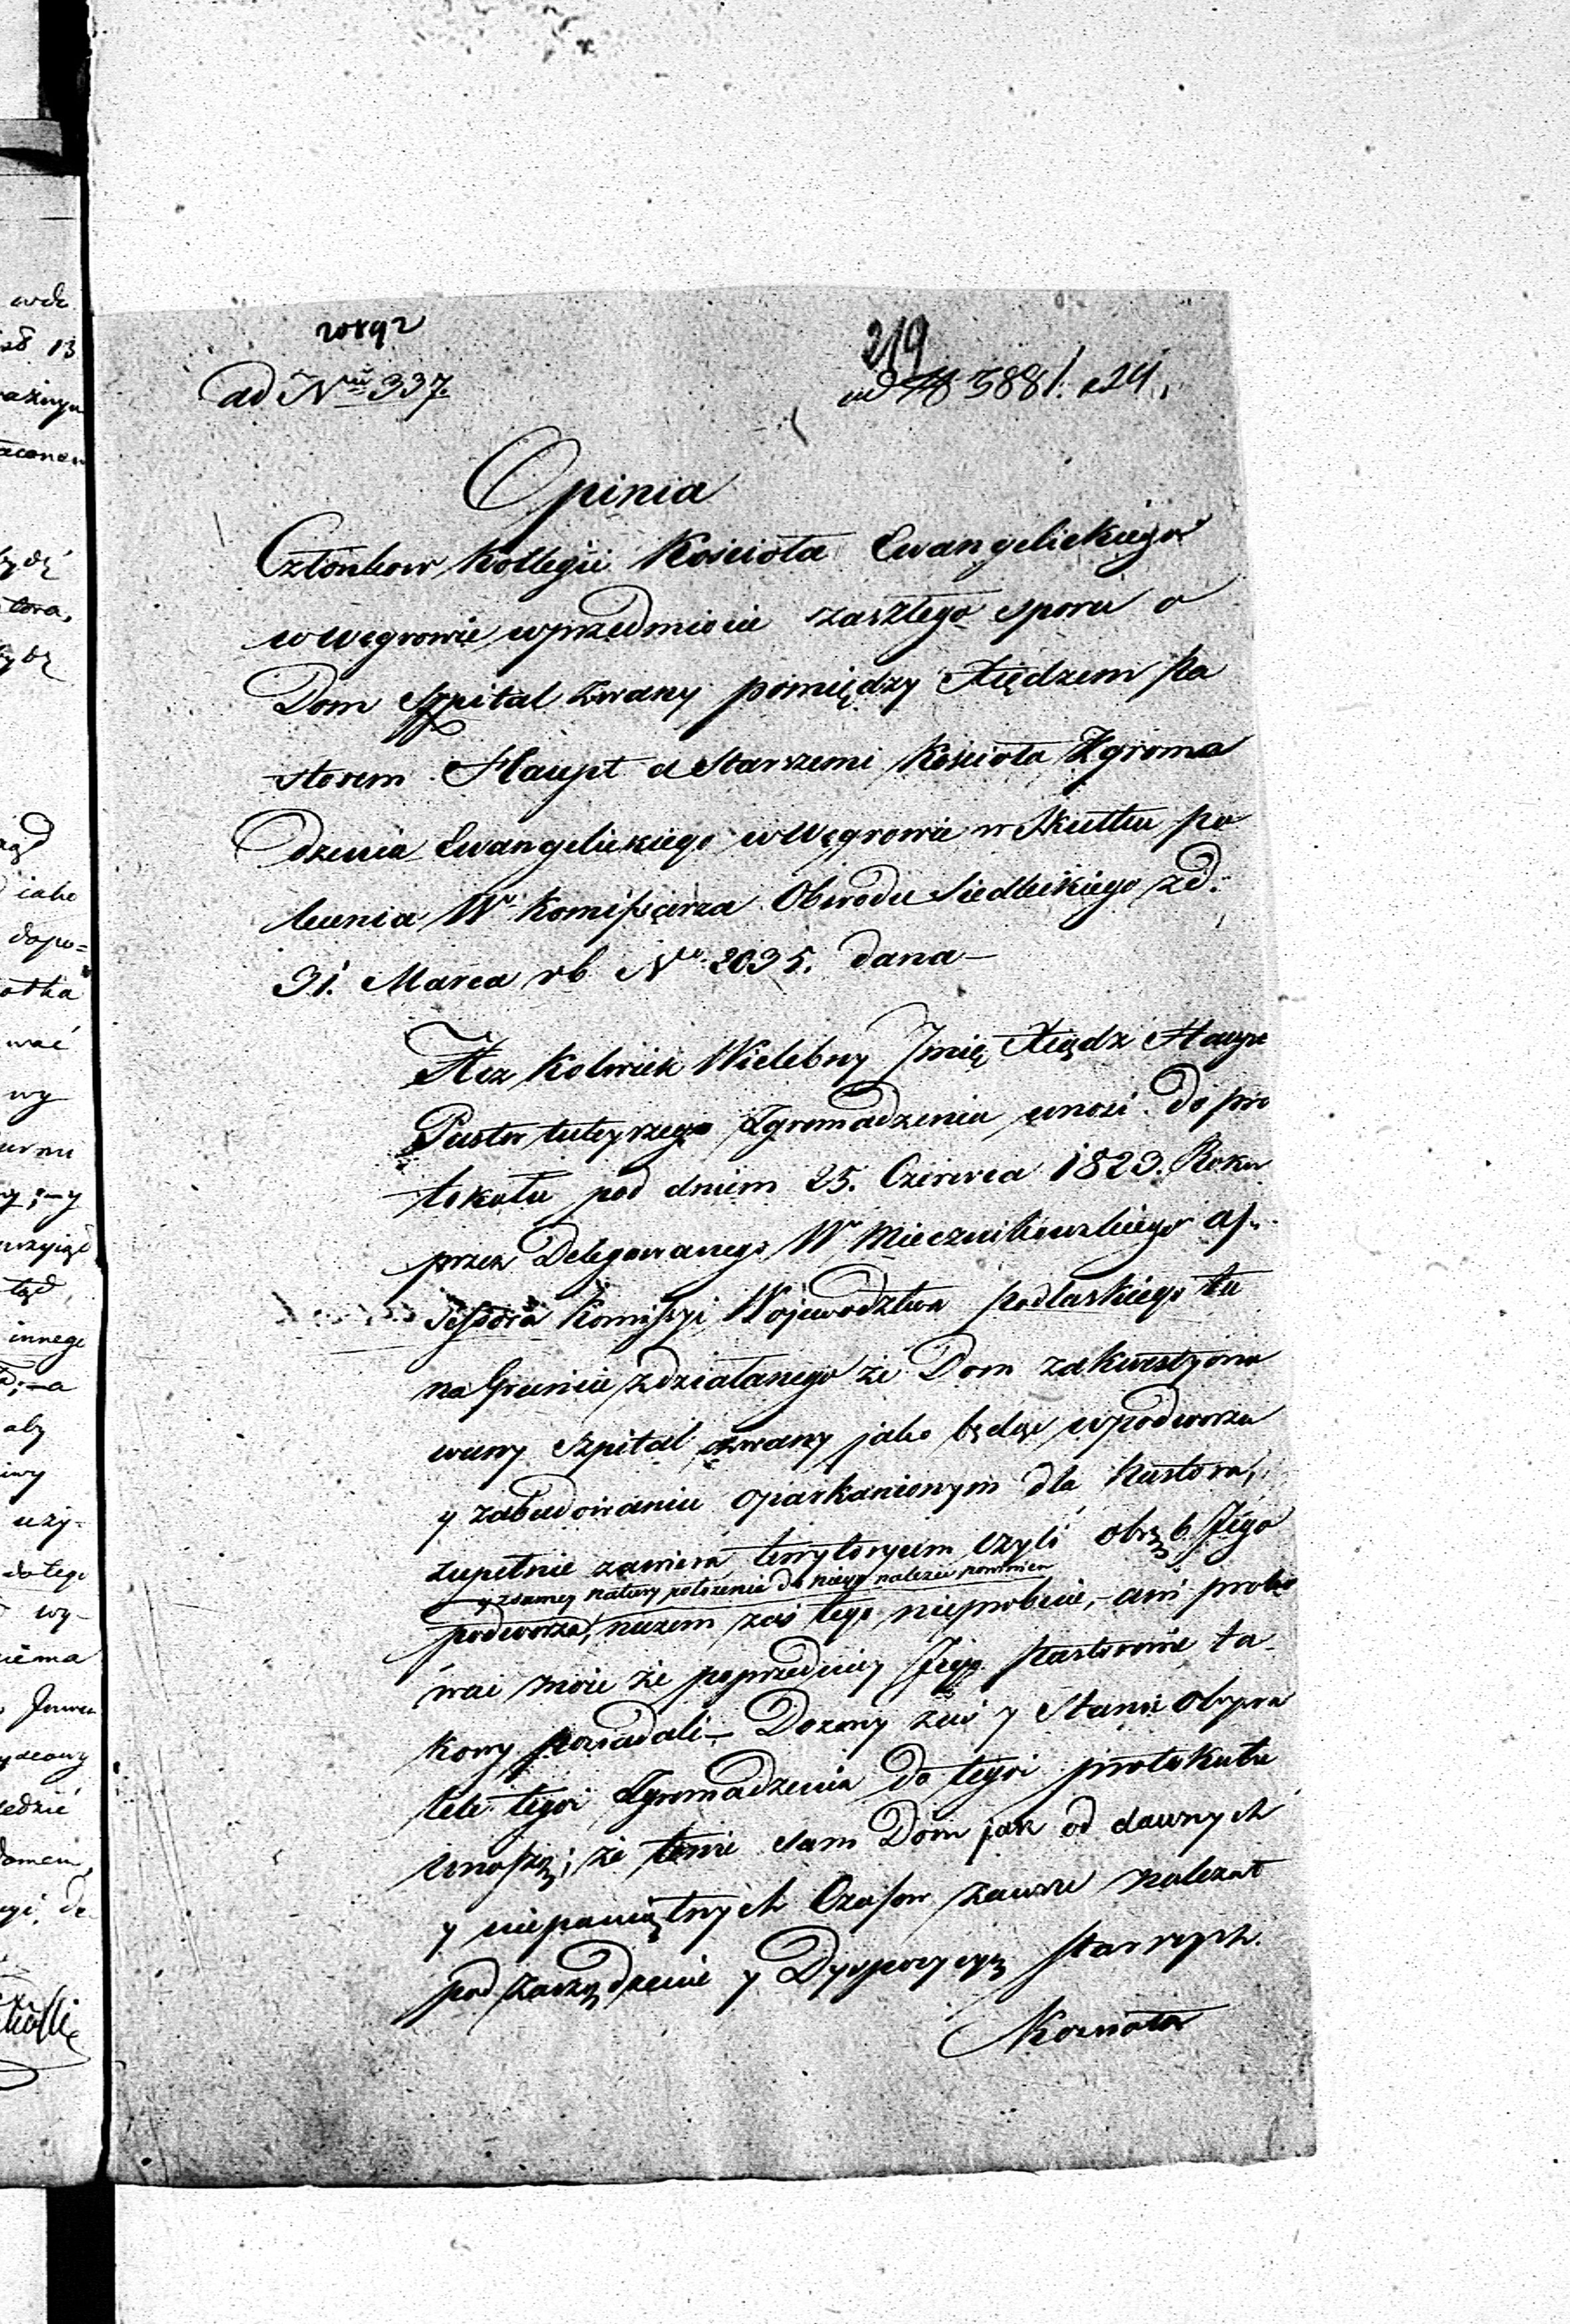 20892
219
ad Nrū 337.
ad 3881. 24.
Opinia
Członkow Kollegii Kościoła Ewangelickiego
w Węgrowie w przedmiocie zaszłego sporu o
Dom Szpital zwany pomiędzy Xiędzem Pa
storem Haupt a Starszemi Kościoła Zgroma
dzenia Ewangelickiego w Węgrowie w Skutku po
lecenia W. Kommissarza Obwodu Siedleckiego z d.
31. Marca r b No 2035. dana —
Acz kolwiek Wielebny Jmię Xiądz Haupt
Pastor tuteyszego Zgromadzenia wnosi do pro
tokułu pod dniem 25. Czerwca 1823. Roku
przez Delegowanego W Miecznikowskiego as
sessora Kommissyi Wojewodztwa Podlaskiego tu
na Gruncie zdziałanego że Dom zakwestyono
wany Szpital zwany jako będąc w podworzu
y zabudowaniu oparkanionym dla Pastora,
zupełnie zawiera terrytoryum czyli obręb Jego
y z samey natury położenia do niego należeć powinien
podworza, niczem zaś tego nieprobuie, — ani probo
wać może że poprzednicy Jego Pastorowie ta
kowy posiadali — Dozory zaś y Starsi Obywa
tele tegoż Zgromadzenia do tegoż protokułu
wnoszą; że tenże sam Dom jak od dawnych
y niepamiętnych Czasow zawsze należał
pod zarządzenie y Dyspozycyą Starszych
Kościoła